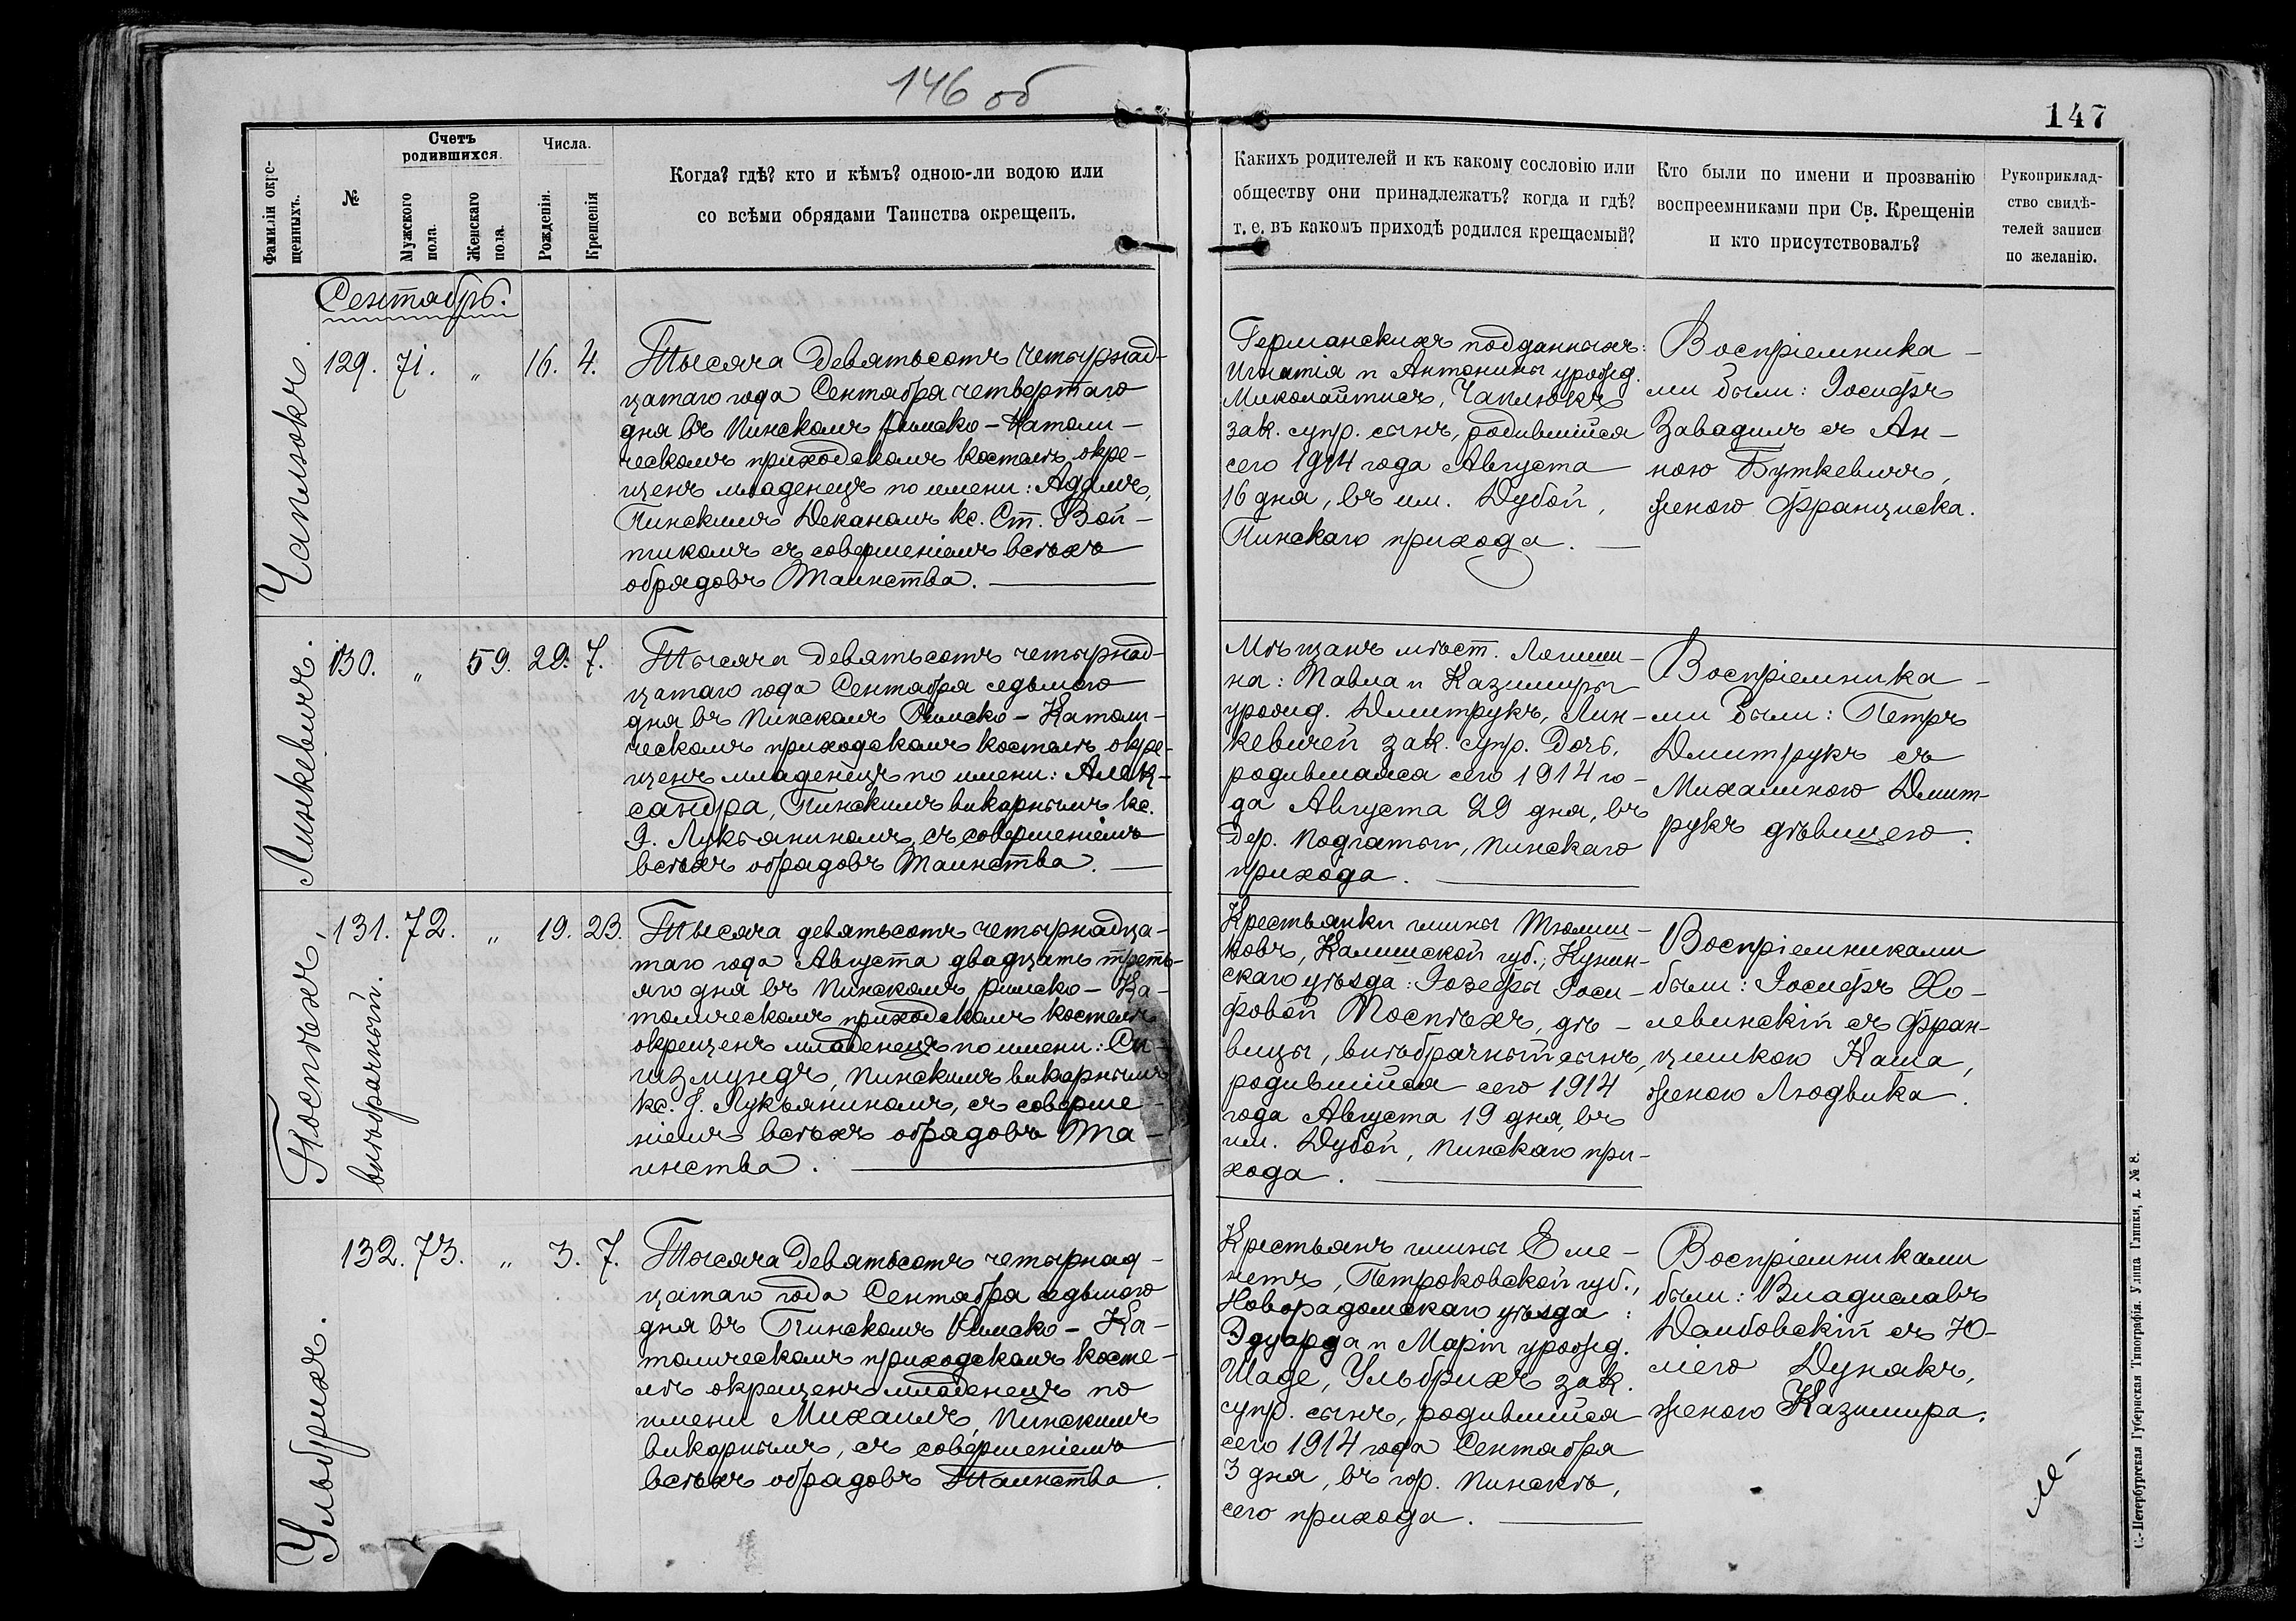 146 об
147
Фамиліи окре-
щенныхъ.
№
Счетъ
родившихся.
Мужского
пола.
Женскаго
пола.
Числа.
Рожденія.
Крещенія
Когда? гдѣ? кто и кѣмъ? одною-ли водою или
со всѣми обрядами Таинства окрещенъ.
Какихъ родителей и къ какому сословію или
обществу они принадлежатъ? когда и гдѣ?
т. е. въ какомъ приходѣ родился крещаемый?
Кто были по имени и прозванію
воспреемниками при Св. Крещеніи
и кто присутствовалъ?
Рукоприклад-
ство свидѣ-
телей записи
по желанію.
Сентябрь.
Чаплюкъ.
129. 71. „ 16. 4.
Тысяча девятьсотъ четырнад-
цатаго года Сентября четвертаго
дня въ Пинскомъ Римско-Католи-
ческомъ приходскомъ костелѣ окре-
щенъ младенецъ по имени: Адамъ,
Пинскимъ Деканомъ кс. Ст. Вой-
тикомъ съ совершеніемъ всѣхъ
обрядовъ Таинства.
Германскихъ подданныхъ:
Игнатія и Антонины урожд.
Миколайтисъ, Чаплюкъ
зак. супр. сынъ, родившійся
сего 1914 года Августа
16 дня, въ им. Дубой,
Пинскаго прихода.
Воспріемника-
ми были: Іосифъ
Завадилъ съ Ан-
ною Буткевичъ,
женою Франциска.
Линкевичъ.
130. „ 59. 29. 7.
Тысяча девятьсотъ четырнад-
цатаго года Сентября седьмого
дня въ Пинскомъ Римско-Католи-
ческомъ приходскомъ костелѣ окре-
щенъ младенецъ по имени: Алек-
сандра, Пинскимъ викарнымъ кс.
І. Лукьяниномъ, съ совершеніемъ
всѣхъ обрядовъ Таинства.
Мѣщанъ мѣст. Логиши-
на: Павла и Казимиры
урожд. Дмитрукъ, Лин-
кевичей зак. супр. дочь,
родившаяся сего 1914 го-
да Августа 29 дня, въ
дер. Подгатьи, Пинскаго
прихода.
Воспріемника-
ми были: Петръ
Дмитрукъ съ
Михалиною Дмит-
рукъ дѣвицею.
Поспѣхъ,
внѣбрачный.
131. 72. „ 19. 23.
Тысяча девятьсотъ четырнадца-
таго года Августа двадцать треть-
яго дня въ Пинскомъ римско-Ка-
толическомъ приходскомъ костелѣ
окрещенъ младенецъ по имени: Си-
гизмундъ, Пинскимъ викарнымъ
кс. І. Лукьяниномъ, съ соверше-
ніемъ всѣхъ обрядовъ Та-
инства.
Крестьянки гмины Тюлиш-
ковъ, Калишской губ., Кунин-
скаго уѣзда: Іозефы Іоси-
фовой Поспѣхъ, дѣ-
вицы, внѣбрачный сынъ,
родившійся сего 1914
года Августа 19 дня, въ
им. Дубой, Пинскаго при-
хода.
Воспріемниками
были: Іосифъ Хо-
левинскій съ Фран-
цишкою Каша,
женою Людвика.
Ульбрихъ.
132. 73. „ 3. 7.
Тысяча девятьсотъ четырнад-
цатаго года Сентября седьмого
дня въ Пинскомъ Римско-Ка-
толическомъ приходскомъ косте-
лѣ окрещенъ младенецъ по
имени Михаилъ, Пинскимъ
викарнымъ, съ совершеніемъ
всѣхъ обрядовъ Таинства.
Крестьянъ гмины Елме-
нетъ, Петроковской губ.,
Новорадомскаго уѣзда:
Эдуарда и Маріи урожд.
Шаде, Ульбрихъ зак.
супр. сынъ, родившійся
сего 1914 года Сентября
3 дня, въ гор. Пинскѣ,
сего прихода.
Воспріемниками
были: Владиславъ
Домбовскій съ Ю-
ліею Дунякъ,
женою Казимира.
С.-Петербургская Губернская Типографія. Улица Глинки, д. № 8.